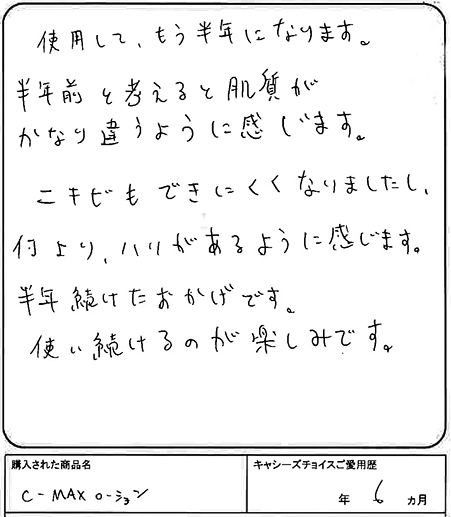 使用して、もう半年になります。
半年前と考えると肌質が
かなり違うように感じます。
ニキビもできにくくなりましたし、
何より、ハリがあるように感じます。
半年続けたおかげです。
使い続けるのが楽しみです。
購入された商品名
キャシーズチョイスご愛用歴
C-MAXローション
年 6 ヵ月